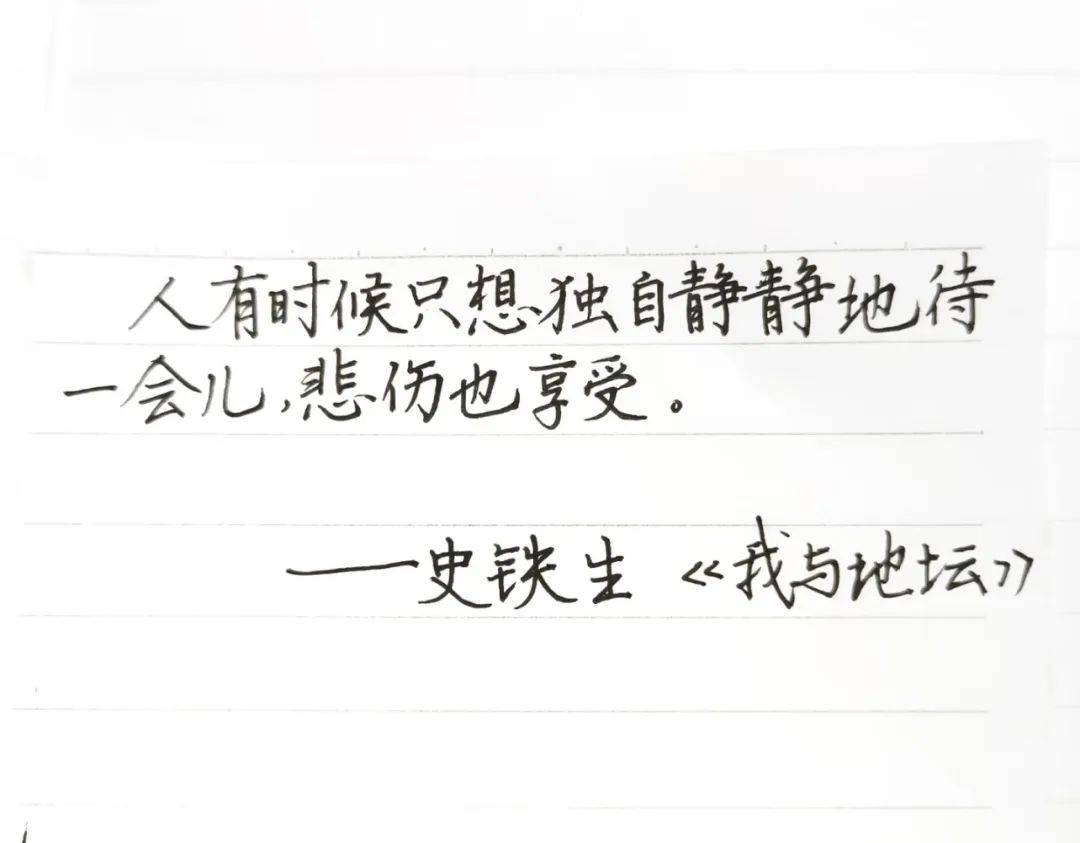 人有时候只想独自静静地待
一会儿,悲伤也享受。
——史铁生《我与地坛》